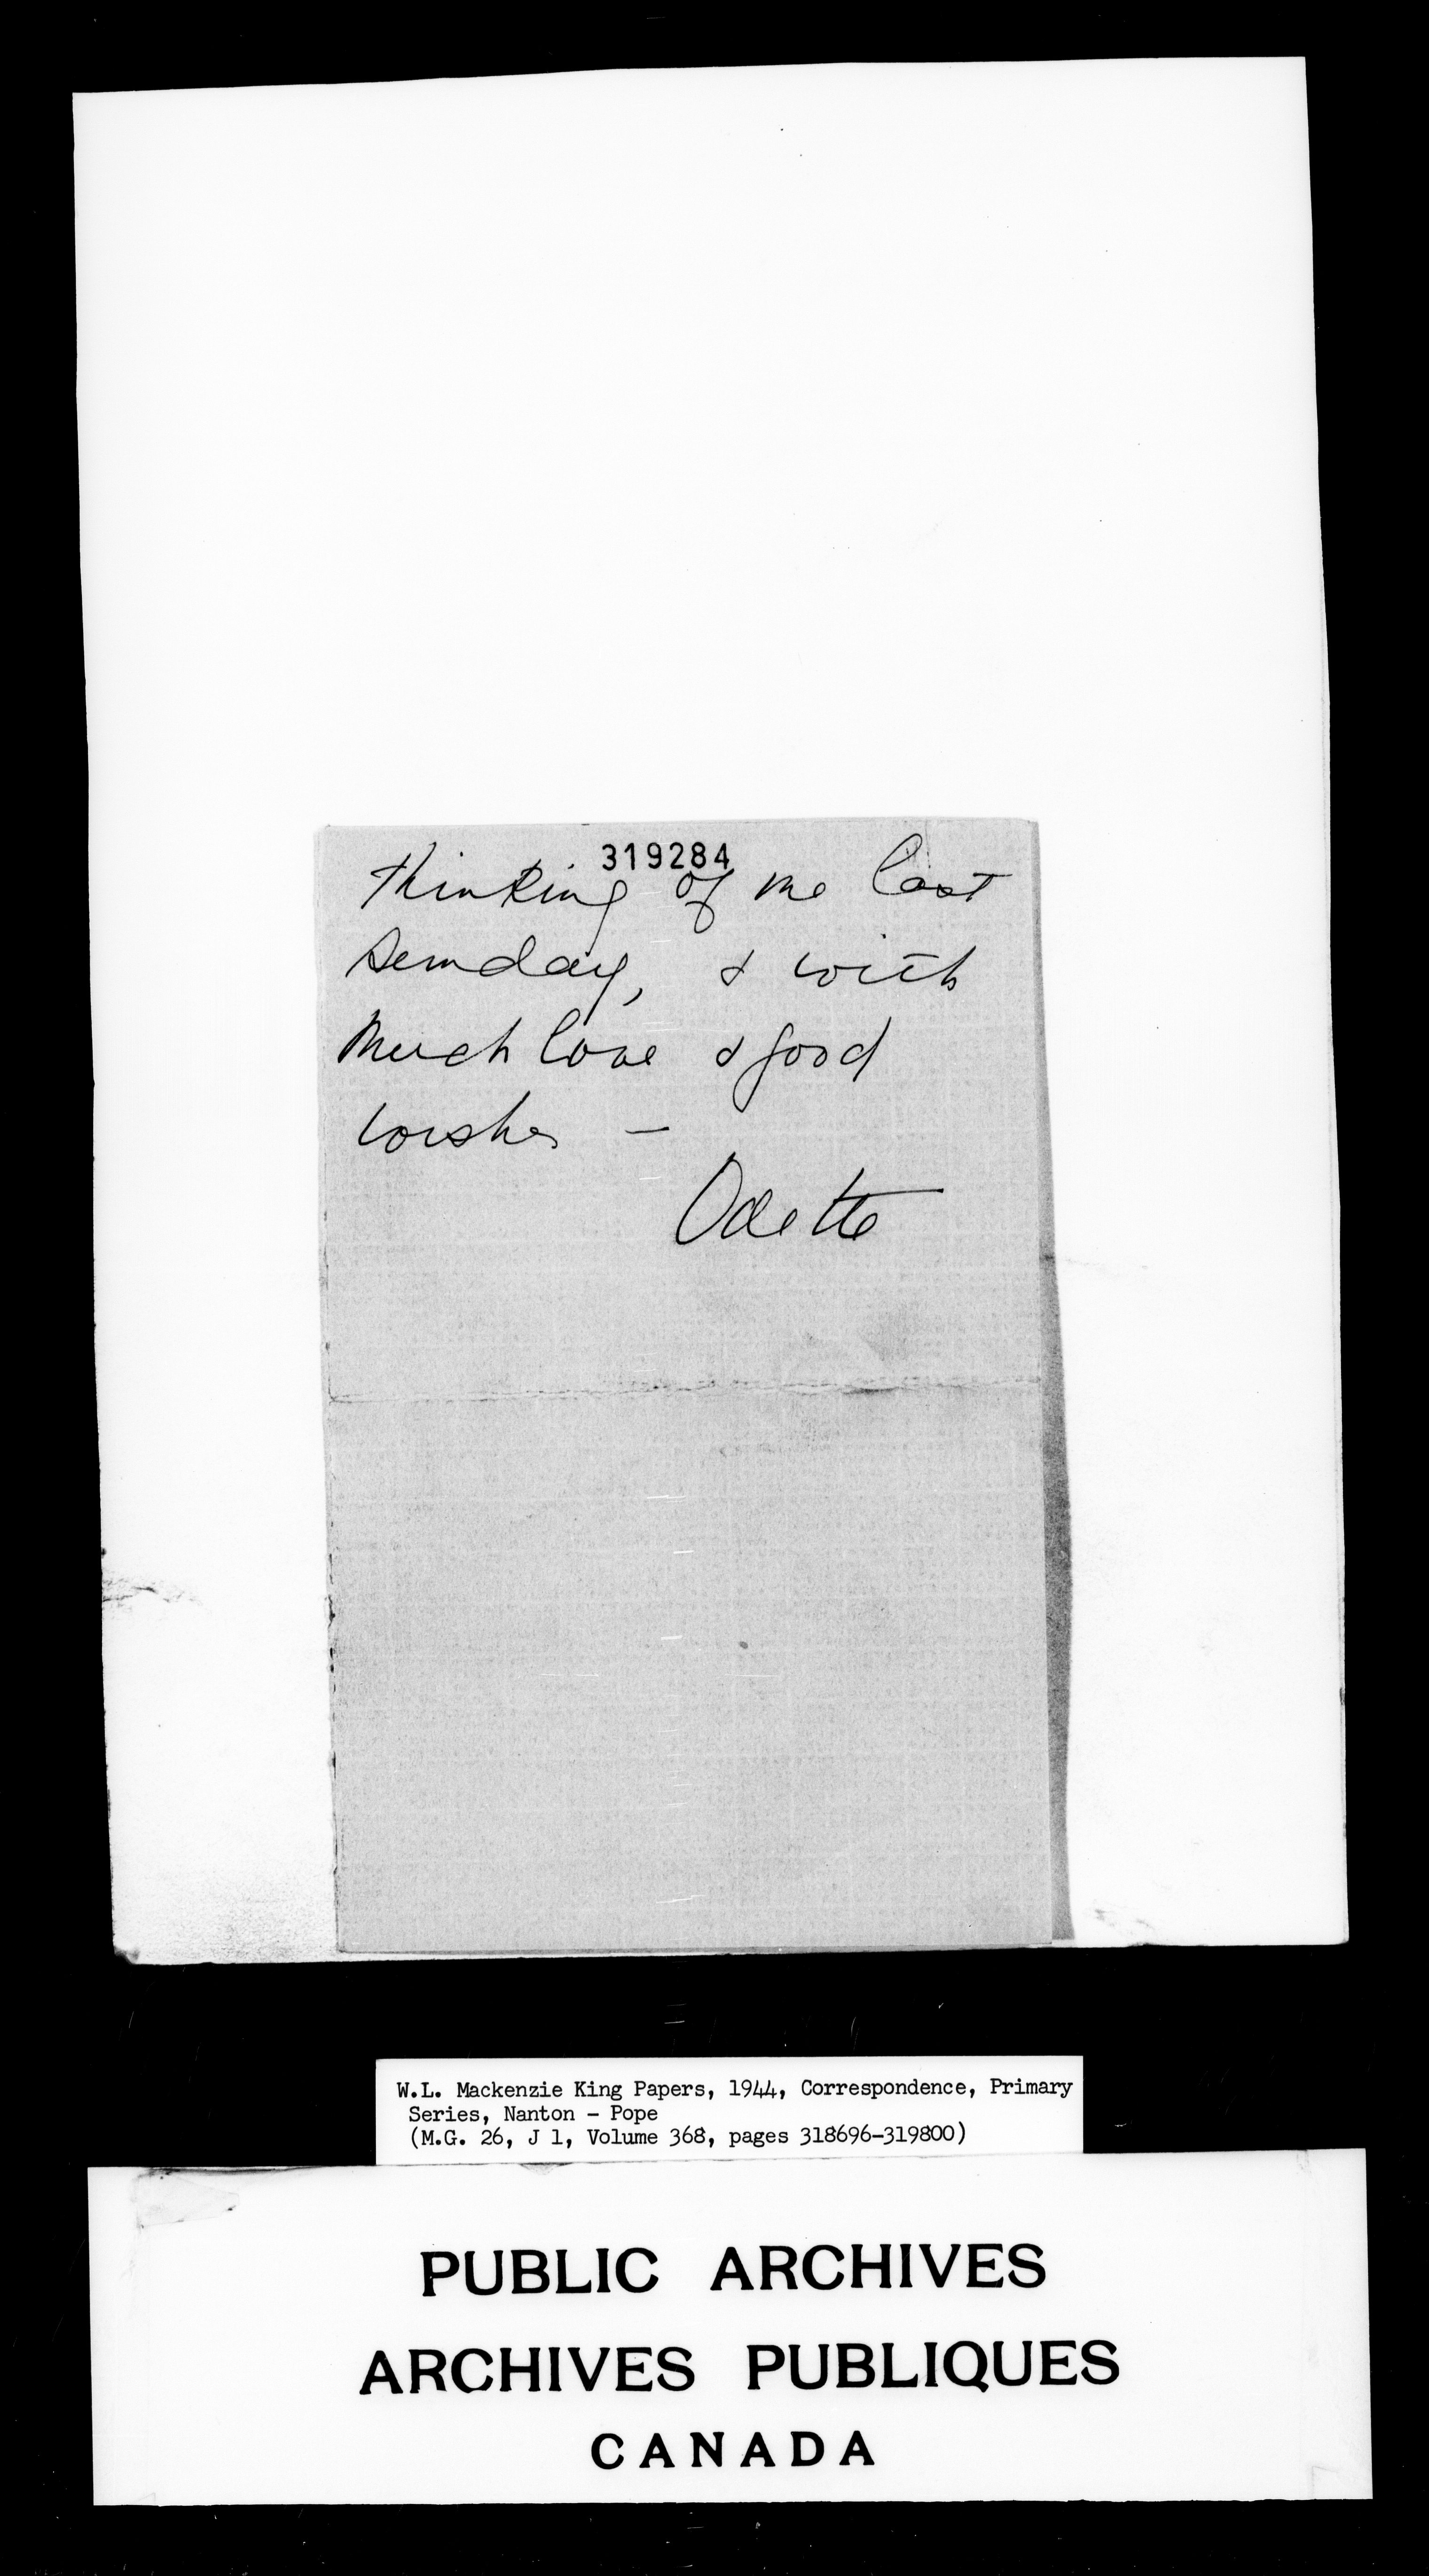 319284
thinking of me last
Sunday, & with
much love & good
wishes –
Odette
W.L. Mackenzie King Papers, 1944, Correspondence, Primary
Series, Nanton - Pope
(M.G. 26, J 1, Volume 368, pages 318696-319800)
PUBLIC ARCHIVES
ARCHIVES PUBLIQUES
CANADA